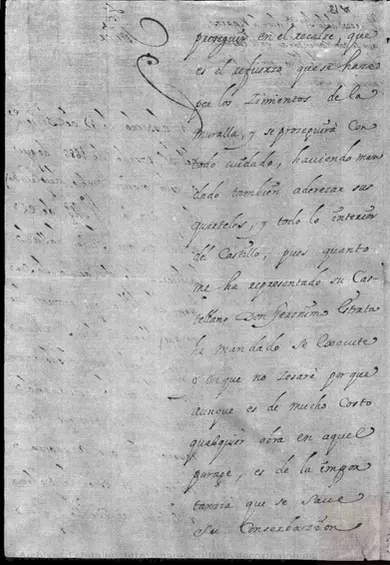 proseguir en el recalse, que
es el refuerzo que se haze
por los Zimientos de la
muralla, y se proseguirá con
todo cuidado, haviendo man
dado tambien aderezar sus
quarteles, y todo lo interior
del Castillo, pues quanto
me ha representado su Cas-
tellano Don Geronimo
he mandado se
que no Zesaré porque
aunque es de mucho Costo
qualquier obra en aquel
parage, es de la impor
tanzia que se save
su Conserbazion